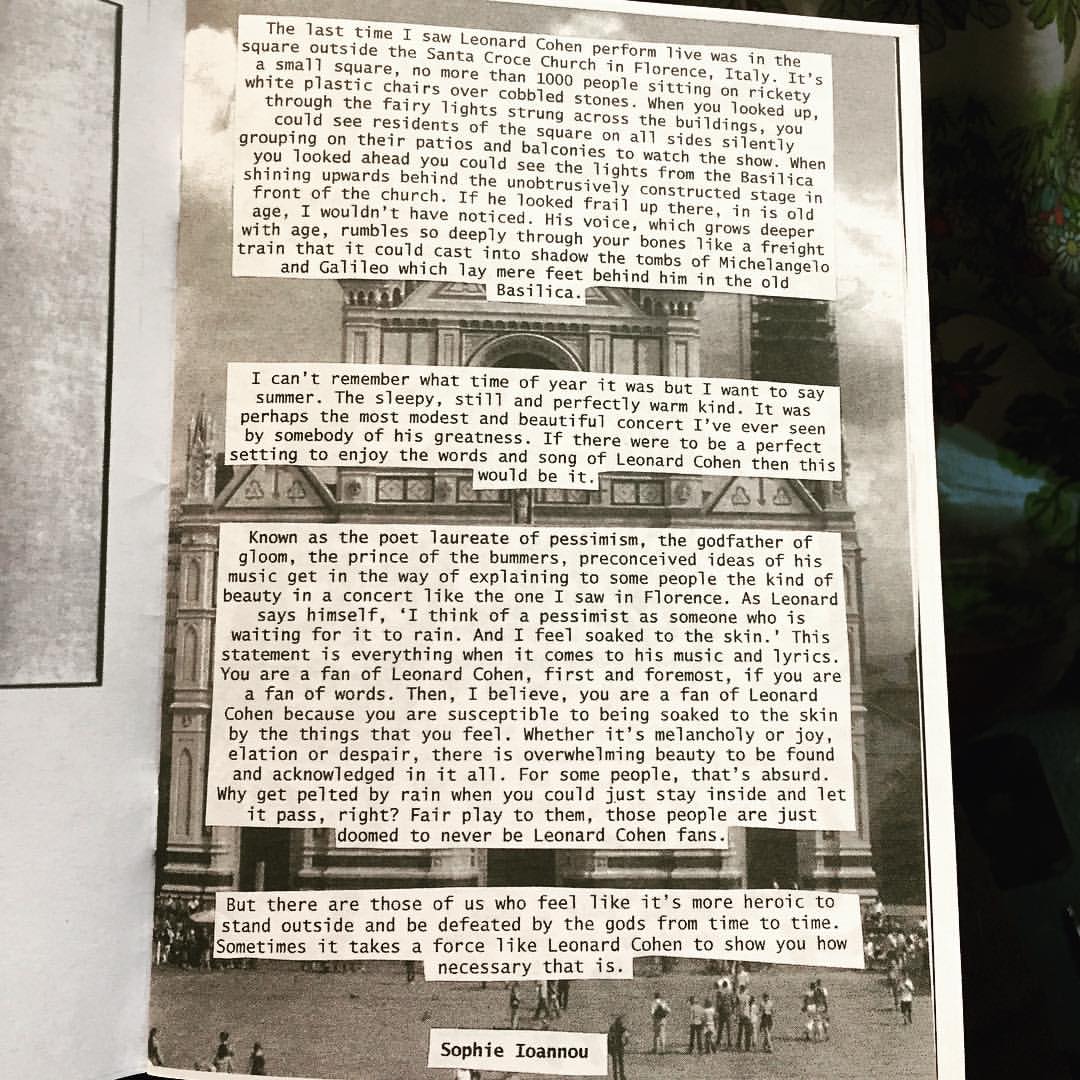 The last time I saw Leonard Cohen perform live was in the
square outside the Santa Croce Church in Florence, Italy. It's
a small square, no more than 1000 people sitting on rickety
white plastic chairs over cobbled stones. When you looked up,
through the fairy lights strung across the buildings, you
could see residents of the square on all sides silently
grouping on their patios and balconies to watch the show. When
you looked ahead you could see the lights from the Basilica
shining upwards behind the unobtrusively constructed stage in
front of the church. If he looked frail up there, in is old
age, I wouldn't have noticed. His voice, which grows deeper
with age, rumbles so deeply through your bones like a freight
train that it could cast into shadow the tombs of Michelangelo
and Galileo which lay mere feet behind him in the old
Basilica.
I can't remember what time of year it was but I want to say
summer. The sleepy, still and perfectly warm kind. It was
perhaps the most modest and beautiful concert I've ever seen
by somebody of his greatness. If there were to be a perfect
setting to enjoy the words and song of Leonard Cohen then this
would be it.
Known as the poet laureate of pessimism, the godfather of
gloom, the prince of the bummers, preconceived ideas of his
music get in the way of explaining to some people the kind of
beauty in a concert like the one I saw in Florence. As Leonard
says himself, ‘I think of a pessimist as someone who is
waiting for it to rain. And I feel soaked to the skin.’ This
statement is everything when it comes to his music and lyrics.
You are a fan of Leonard Cohen, first and foremost, if you are
a fan of words. Then, I believe, you are a fan of Leonard
Cohen because you are susceptible to being soaked to the skin
by the things that you feel. Whether it's melancholy or joy,
elation or despair, there is overwhelming beauty to be found
and acknowledged in it all. For some people, that's absurd.
Why get pelted by rain when you could just stay inside and let
it pass, right? Fair play to them, those people are just
doomed to never be Leonard Cohen fans.
But there are those of us who feel like it's more heroic to
stand outside and be defeated by the gods from time to time.
Sometimes it takes a force like Leonard Cohen to show you how
necessary that is.
Sophie Ioannou